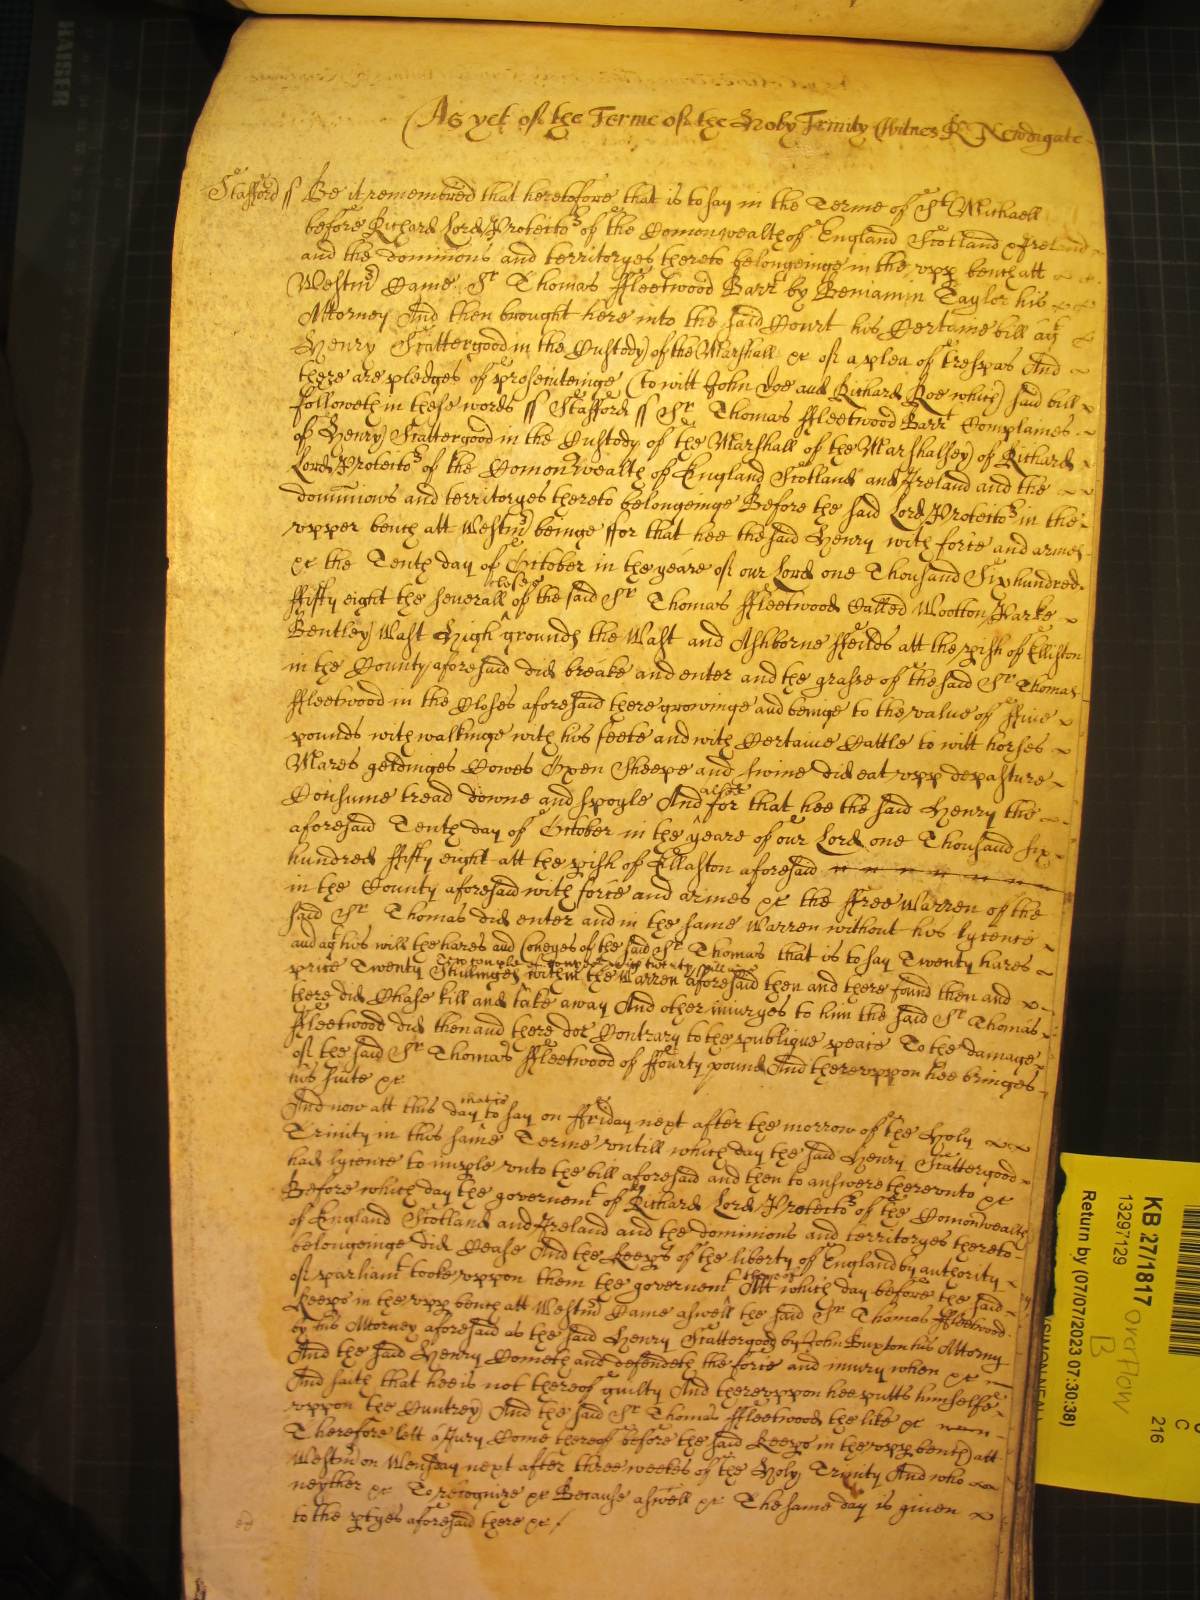 As yet of the Terme of the Holy Trinity Witnes R Newdigate
Stafford ss Be it remembred that heretofore that is to say in the Terme of St Michaell
before Richard Lord Protector of the Comonwealth of England Scotland & Ireland
and the dominions and territoryes thereto belongeinge in the upp bench att
Westmr Came Sr Thomas Fleetwood Barrt by Beniamin Taylor his
Attorney And then brought here into the said Court his Certaine bill agt
Henry Scattergood in the Custody of the Marshall &c of a plea of trespas And
there are pledges of prosecuteinge (to witt John Doe and Richard Roe which said bill
followeth in these words ss Stafford ss Sr Thomas ffleetwood Barrt Complaines
of Henry Scattergood in the Custody of the Marshall of the Marshalsey of Richard
Lord Protector of the Comonwealth of England Scotland and Ireland and the
dominions and territoryes thereto belongeinge Before the said Lord Protector in the
upper bench att Westmr beinge ffor that hee the said Henry with force and armes
&c the Tenth day of October in the yeare of our Lord one Thousand Six hundred
ffifty eight the severall closes of the said Sr Thomas ffleetwood Called Wootton Parke
Bentley Wast High grounds the Wast and Ashborne ffeilds att the pish of Elliston
in the County aforesaid did breake and enter and the grasse of the said Sr Thomas
ffleetwood in the Closes aforesaid there groweinge and beinge to the value of ffive
pounds with walkinge with his feete and with Certaine Cattle to witt horses
Mares geldinges Cowes Oxen Sheepe and swine did eat upp depasture
Consume tread downe and spoyle And also for that hee the said Henry the
aforesaid Tenth day of October in the yeare of our Lord one Thousand six
hundred ffifty eight att the pish of Ellaston aforesaid
in the County aforesaid with force and armes &c the ffree Warren of the
said Sr Thomas did enter and in the same Warren without his lycence
and agt his will the hares and Coneyes of the said Sr Thomas that is to say Twenty hares
price Twenty Shillinges two couple of Conyes price twenty shillings within the Warren aforesaid then and there found then and
there did Chase kill and take away And other iniuryes to him the said Sr Thomas
ffleetwood did then and there doe Contrary to the publique peace To the damage
of the said Sr Thomas ffleetwood of ffourty pound And thereuppon hee bringes
his suite &c
And now att this day that is to say on ffriday next after the morrow of the Holy
Trinity in this same Terme untill which day the said Henry Scattergood
had lycence to imple unto the bill aforesaid and then to answere thereunto &c
Before which day the governemt of Richard Lord Protector of the Comonwealth
of England Scotland and Ireland and the dominions and territoryes thereto
belongeinge did Cease And the Keeps of the liberty of England by authority
of parliamt tooke uppon them the governemt thereof Att which day before the said
Keeps in the upp bench att Westmr Came aswell the said Sr Thomas ffleetwood
by his Attorney aforesaid as the said Henry Scattergood by John Buxton his Attorny
And the said Henry Cometh and defendeth the force and iniury when &c
And saith that hee is not thereof guilty And thereuppon hee putts himselfe
uppon the Cuntrey And the said Sr Thomas ffleetwood the like &c
Therefore lett a Jury Come thereof before the said Keeps in the upp bench att
Westmr on Wensday next after three weekes of the Holy Trinity And who
neyther &c To recognize &c Because aswell &c The same day is given
to the ptyes aforesaid there &c /
KAISER
KB 27/1817
13297129
Return by (07/07/2023 07:30:38)
Overflow
B
C
216